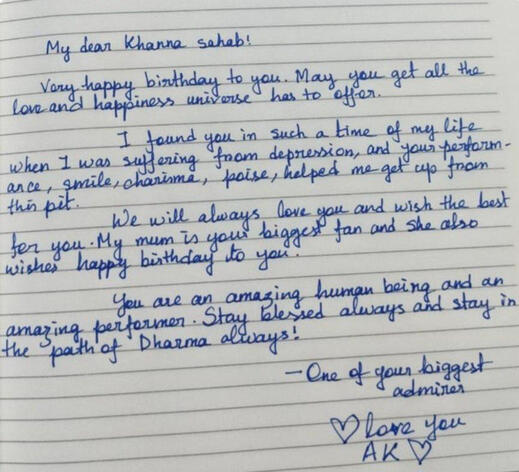 My dear Khanna sahab!
Very happy birthday to you. May you get all the
love and happiness universe has to offer.
I found you in such a time of my life
when I was suffering from depression, and your perform-
ance, smile, charisma, poise, helped me get up from
this pit.
We will always love you and wish the best
for you. My mum is your biggest fan and she also
wishes happy birthday to you.
You are an amazing human being and an
amazing performer. Stay blessed always and stay in
the path of Dharma always!
- One of your biggest
admirer
♡ love you
AK ♡